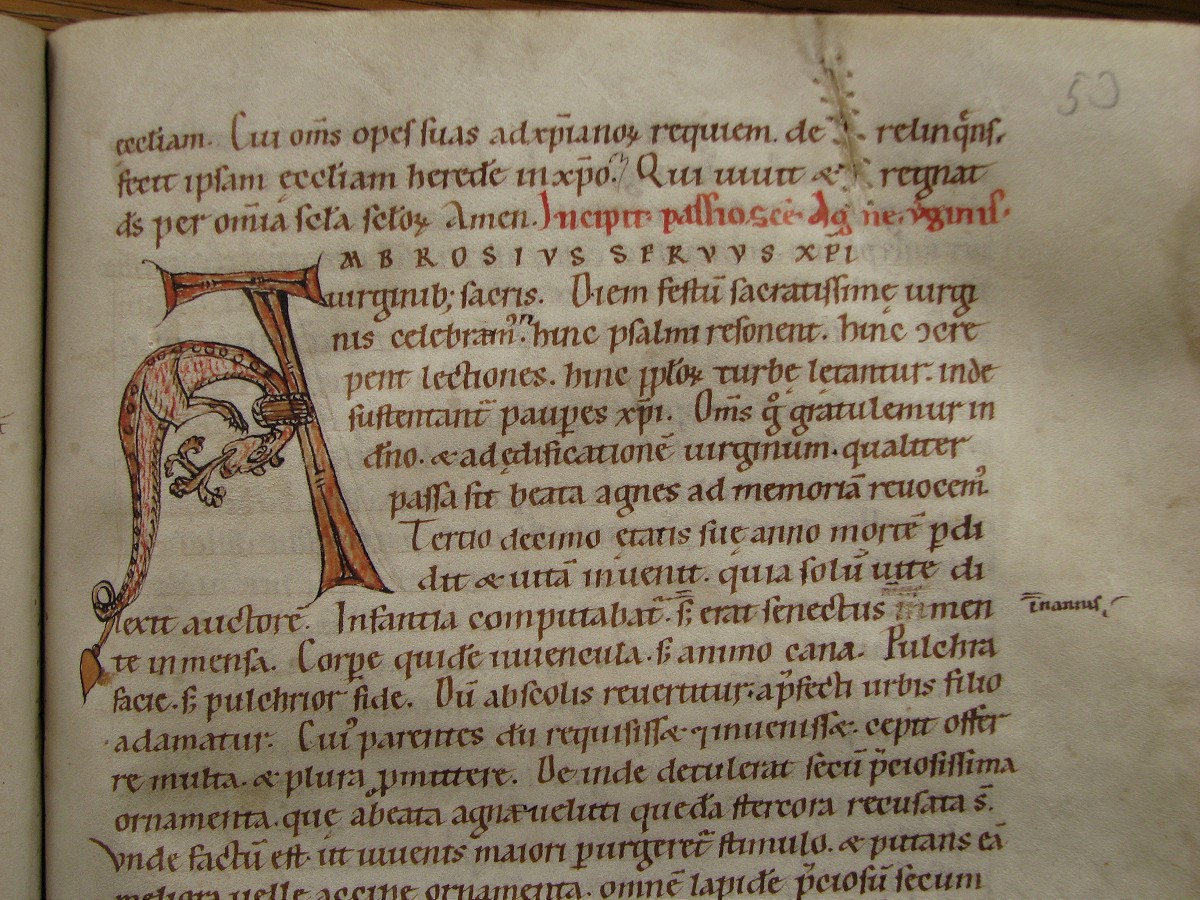 53
ęccłiam. Cui om̄s opes suas ad xp̄ianoꝝ requiem. de relinq̄ns.
fecit ipsam ęccłiam herede in xp̄o. Qui uiuit & regnat
ds̄ per om̄ia scła scłoꝝ Amen. Incipit passio. scē. Ag ne. v̄ginis.
AMBROSIVS SERVVS XP̄I
uirginib; sacris. Diem festū sacratissimę uirgi
nis celebram᾽. hinc psalmi resonent. hinc ↄcre
pent lectiones. hinc pp̄łoꝝ turbę lętantur. inde
sustentant᷑ pauꝑes xp̄i. Om̄s g̊ gratulemur in
dn̄o. & ad ędificationē uirginum. qualiter
passa sit beata agnes ad memoriā reuocem᾽.
Tertio decimo ętatis suę anno mortē ꝑdi
dit & uitā inuenit. quia solū uitę di
lexit auctorē. Infantia computabat᷑ s; erat senectus men
in annis.
te inmensa. Corꝑe quidē iuuencula. s; animo cana. Pulchra
facie. s; pulchrior fide. Dū a bscolis reuertitur. a p̄fecti urbis filio
adamatur. Cui᾽ parentes dū requisiss& ⁊ inueniss&. cepit offer
re multa. & plura ꝓmittere. De inde detulerat secū p̄ciosissima
ornamenta. quę a beata agnę ueluti quędā stercora recusata s̄.
Vnde factū est. ut iuuenis maiori ꝑurgeret᷑ stimulo. & putans eā
meliora uelle accipe ornamenta. omnē lapidē p̄ciosū secum